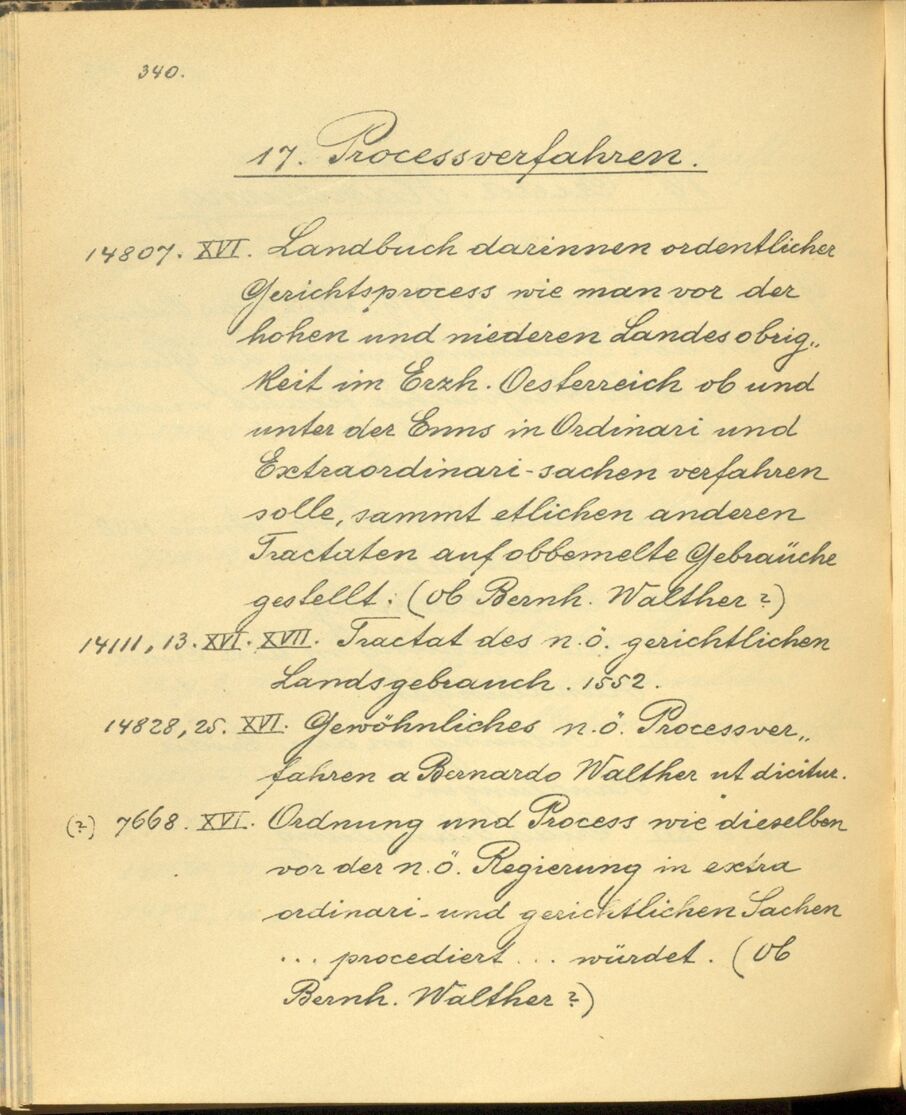 340.
17. Processverfahren.
14807. XVI. Landbuch darinnen ordentlicher
Gerichtsprocess wie man vor der
hohen und niederen Landesobrig„
keit im Erzh. Oesterreich ob und
unter der Enns in Ordinari und
Extraordinari-sachen verfahren
solle, sammt etlichen anderen
Tractaten auf obbemelte Gebräuche
gestellt. (Ob Bernh. Walther?)
14111, 13. XVI. XVII. Tractat des n.ö. gerichtlichen
Landsgebrauch. 1552.
14828, 25. XVI. Gewöhnliches n.ö. Processver„
fahren a Bernardo Walther ut dicitur.
(?) 7668. XVI. Ordnung und Process wie dieselben
vor der n.ö. Regierung in extra
ordinari- und gerichtlichen Sachen
... procediert ... würdet. (Ob
Bernh. Walther?)